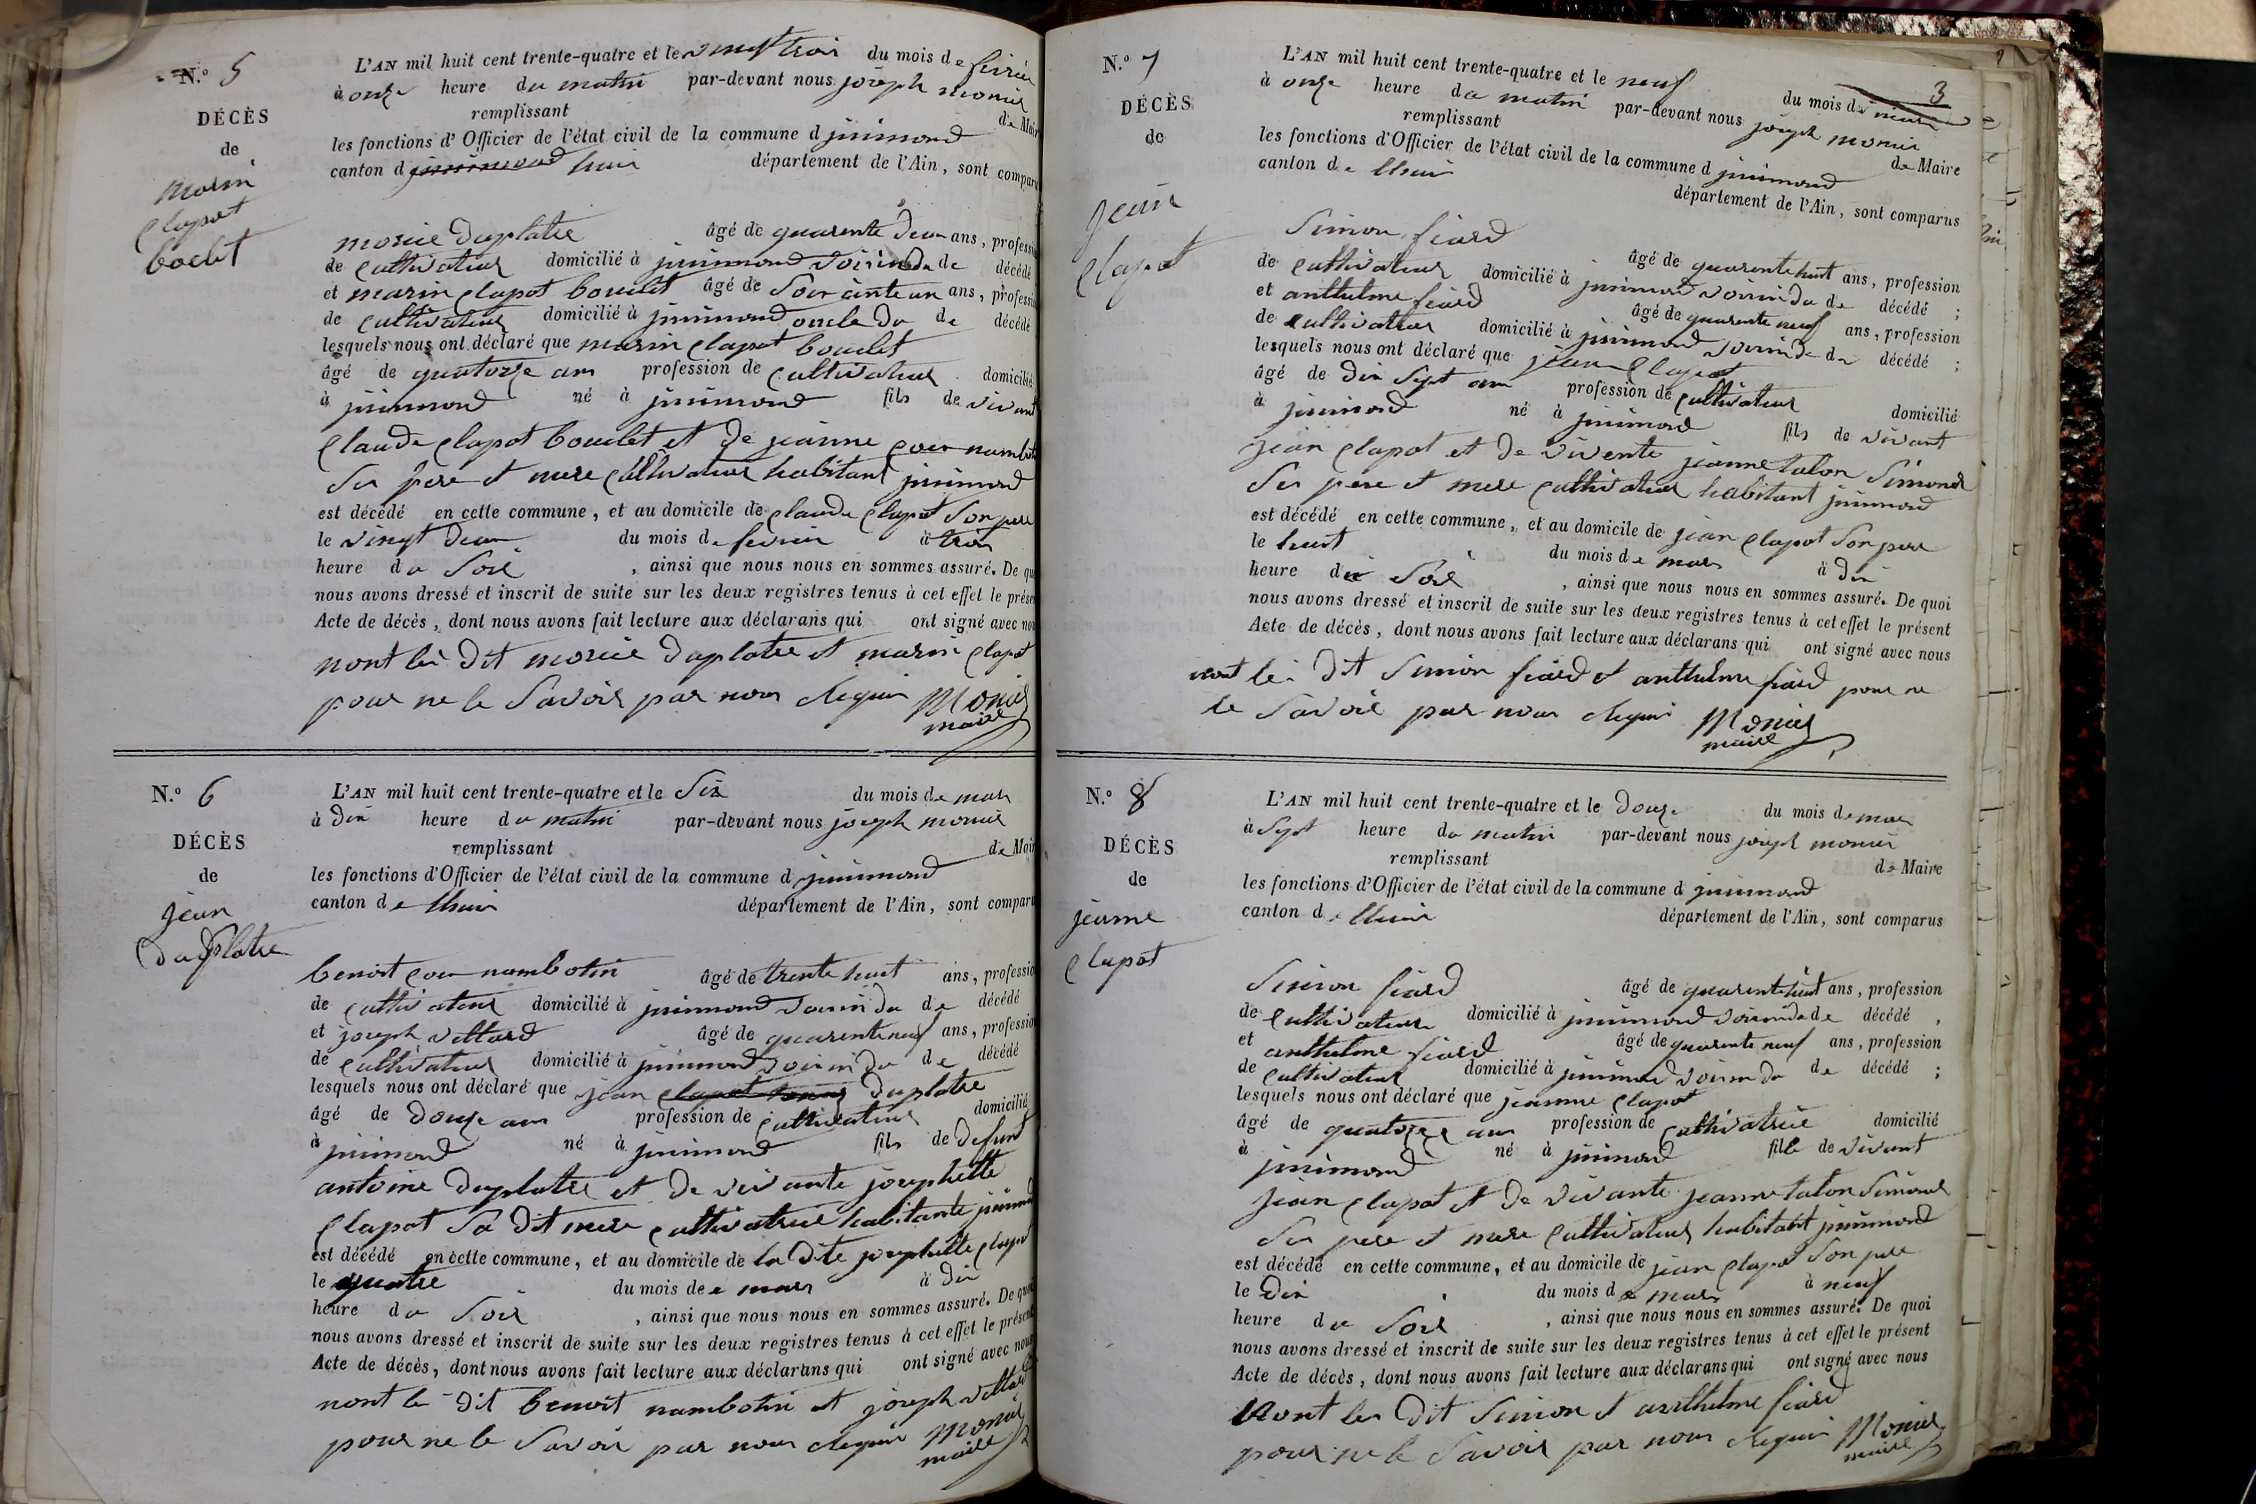 N.° 5
DÉCÈS
de
marin
clapot
boclet
L'AN mil huit cent trente-quatre et le vingt trois du mois de fevrier
à onze heure du matin par-devant nous joseph monier
remplissant de Mair
les fonctions d'Officier de l'état civil de la commune d jnnimond
canton d jnnimond lhuis département de l'Ain, sont compar
morice duplatre âgé de quarente deux ans, professi
de cultivateur domicilié à jnnimond voisin du de décédé
et marin clapot bouclet âgé de soixante un ans, professi
de cultivateur domicilié à jnnimond oncle du de décédé
lesquels nous ont déclaré que marin clapot bouclet
âgé de quatorze ans profession de cultivateur domicilié
à jnnimond né à jnnimond fils de vivant
claude clapot bouclet et de jeanne coux nambot
ses pere et mere cultivateur habitant jnnimond
est décédé en cette commune, et au domicile de claude clapot son pere
le vingt deux du mois de fevrier à trois
heure du soir, ainsi que nous nous en sommes assuré. De qu
nous avons dressé et inscrit de suite sur les deux registres tenus à cet effet le prése
Acte de décès, dont nous avons fait lecture aux déclarans qui ont signé avec nou
nont les dit morice duplatre et marin clapot
pour ne le savoir par nous requis Monier
maire
N.° 6
DÉCÈS
de
jean
duplatre
L'AN mil huit cent trente-quatre et le six du mois de mars
à dix heure du matin par-devant nous joseph monier
remplissant de Mair
les fonctions d'Officier de l'état civil de la commune d jnnimond
canton de lhuis département de l'Ain, sont compar
benoit coux nambotin âgé de trente huit ans, professio
de cultivateur domicilié à jnnimond voisin du de décédé
et joseph vettard âgé de quarente neuf ans, professio
de cultivateur domicilié à jnnimond voisin du de décédé
lesquels nous ont déclaré que jean clapot duplatre
âgé de douze ans profession de cultivateur domicilié
à jnnimond né à jnnimond fils de defunt
antoine duplatre et de vivante josephette
clapot sa dit mere cultivatrice habitante jnnimond
est décédé en cette commune, et au domicile de la dite josephette clapot
le quatre du mois de mars à dix
heure du soir, ainsi que nous nous en sommes assuré. De quo
nous avons dressé et inscrit de suite sur les deux registres tenus à cet effet le présen
Acte de décès, dont nous avons fait lecture aux déclarans qui ont signé avec nous
nont les dit benoit nambotin et joseph vettard
pour ne le savoir par nous requis Monier
maire
3
N.° 7
DÉCÈS
de
jean
clapot
L'AN mil huit cent trente-quatre et le neuf du mois de mars
à onze heure du matin par-devant nous joseph monier
remplissant de Maire
les fonctions d'Officier de l'état civil de la commune d jnnimond
canton de lhuis département de l'Ain, sont comparus
Simon fiard âgé de quarente huit ans, profession
de cultivateur domicilié à jnnimond voisin du de décédé ;
et anthelme fiard âgé de quarente neuf ans, profession
de cultivateur domicilié à jnnimond voisin du de décédé ;
lesquels nous ont déclaré que jean clapot
âgé de dix sept ans profession de cultivateur domicilié
à jnnimond né à jnnimond fils de vivant
jean clapot et de vivente jeanne talon Simond
ses pere et mere cultivateur habitant jnnimond
est décédé en cette commune, et au domicile de jean clapot son pere
le huit du mois de mars à dix
heure du soir, ainsi que nous nous en sommes assuré. De quoi
nous avons dressé et inscrit de suite sur les deux registres tenus à cet effet le présent
Acte de décès, dont nous avons fait lecture aux déclarans qui ont signé avec nous
nont les dit Simon fiard et anthelme fiard pour ne
le savoir par nous requis Monier
maire
N.° 8
DÉCÈS
de
jeanne
clapot
L'AN mil huit cent trente-quatre et le douze du mois de mars
à sept heure du matin par-devant nous joseph monier
remplissant de Maire
les fonctions d'Officier de l'état civil de la commune d jnnimond
canton de lhuis département de l'Ain, sont comparus
Simon fiard âgé de quarente huit ans, profession
de cultivateur domicilié à jnnimond voisin du de décédé ,
et anthelme fiard âgé de quarente neuf ans, profession
de cultivateur domicilié à jnnimond voisin du de décédé ;
lesquels nous ont déclaré que jeanne clapot
âgé de quatorze ans profession de cultivatrice domicilié
à jnnimond né à jnnimond fille de vivant
jean clapot et de vivante jeanne talon Simond
ses pere et mere cultivateur habitant jnnimond
est décédé en cette commune, et au domicile de jean clapot son pere
le dix du mois de mars à neuf
heure du soir, ainsi que nous nous en sommes assuré. De quoi
nous avons dressé et inscrit de suite sur les deux registres tenus à cet effet le présent
Acte de décès, dont nous avons fait lecture aux déclarans qui ont signé avec nous
nont les dit Simon et anthelme fiard
pour ne le savoir par nous requis Monier
maire